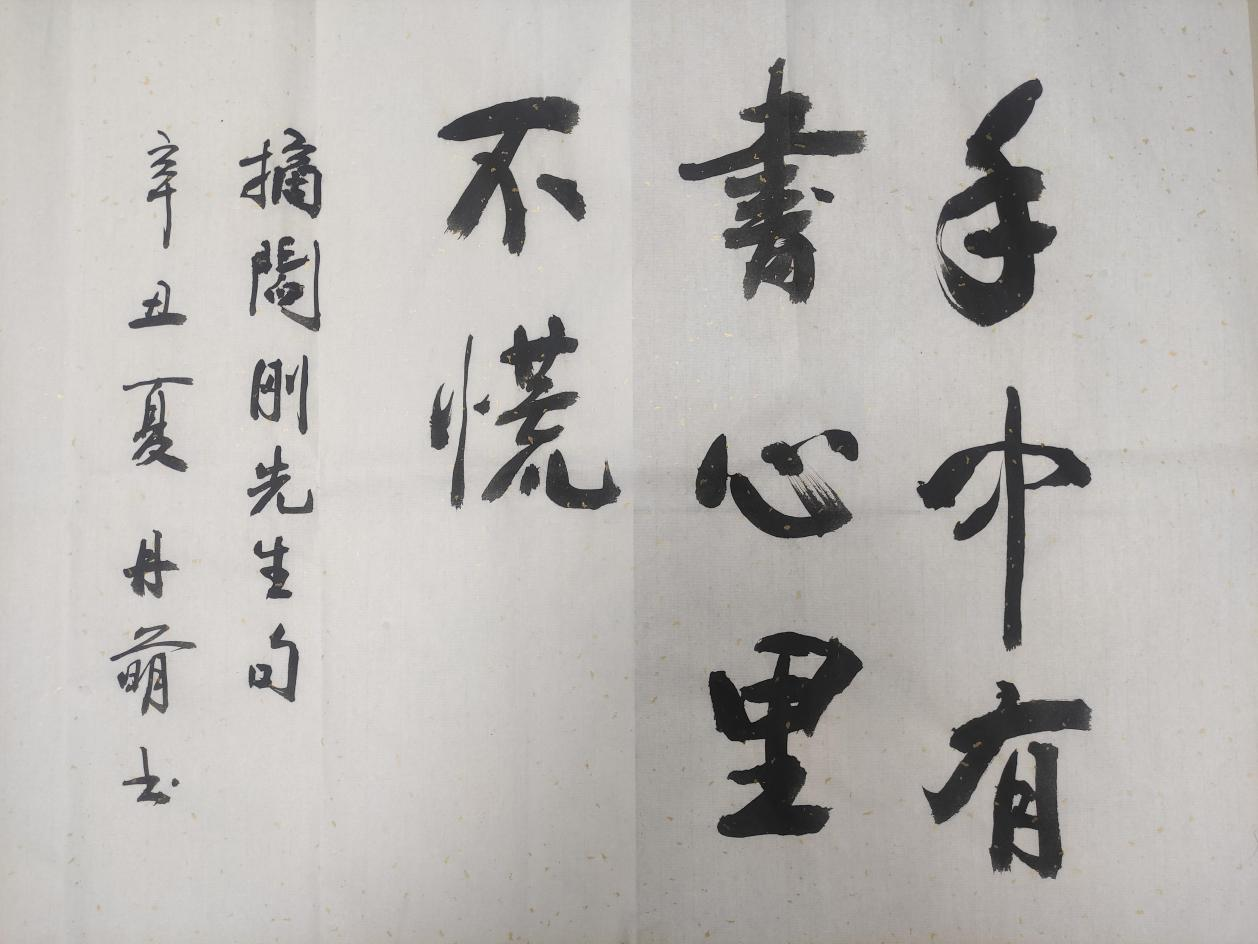 手中有
書心里
不慌
摘閻刚先生句
辛丑夏丹萌书